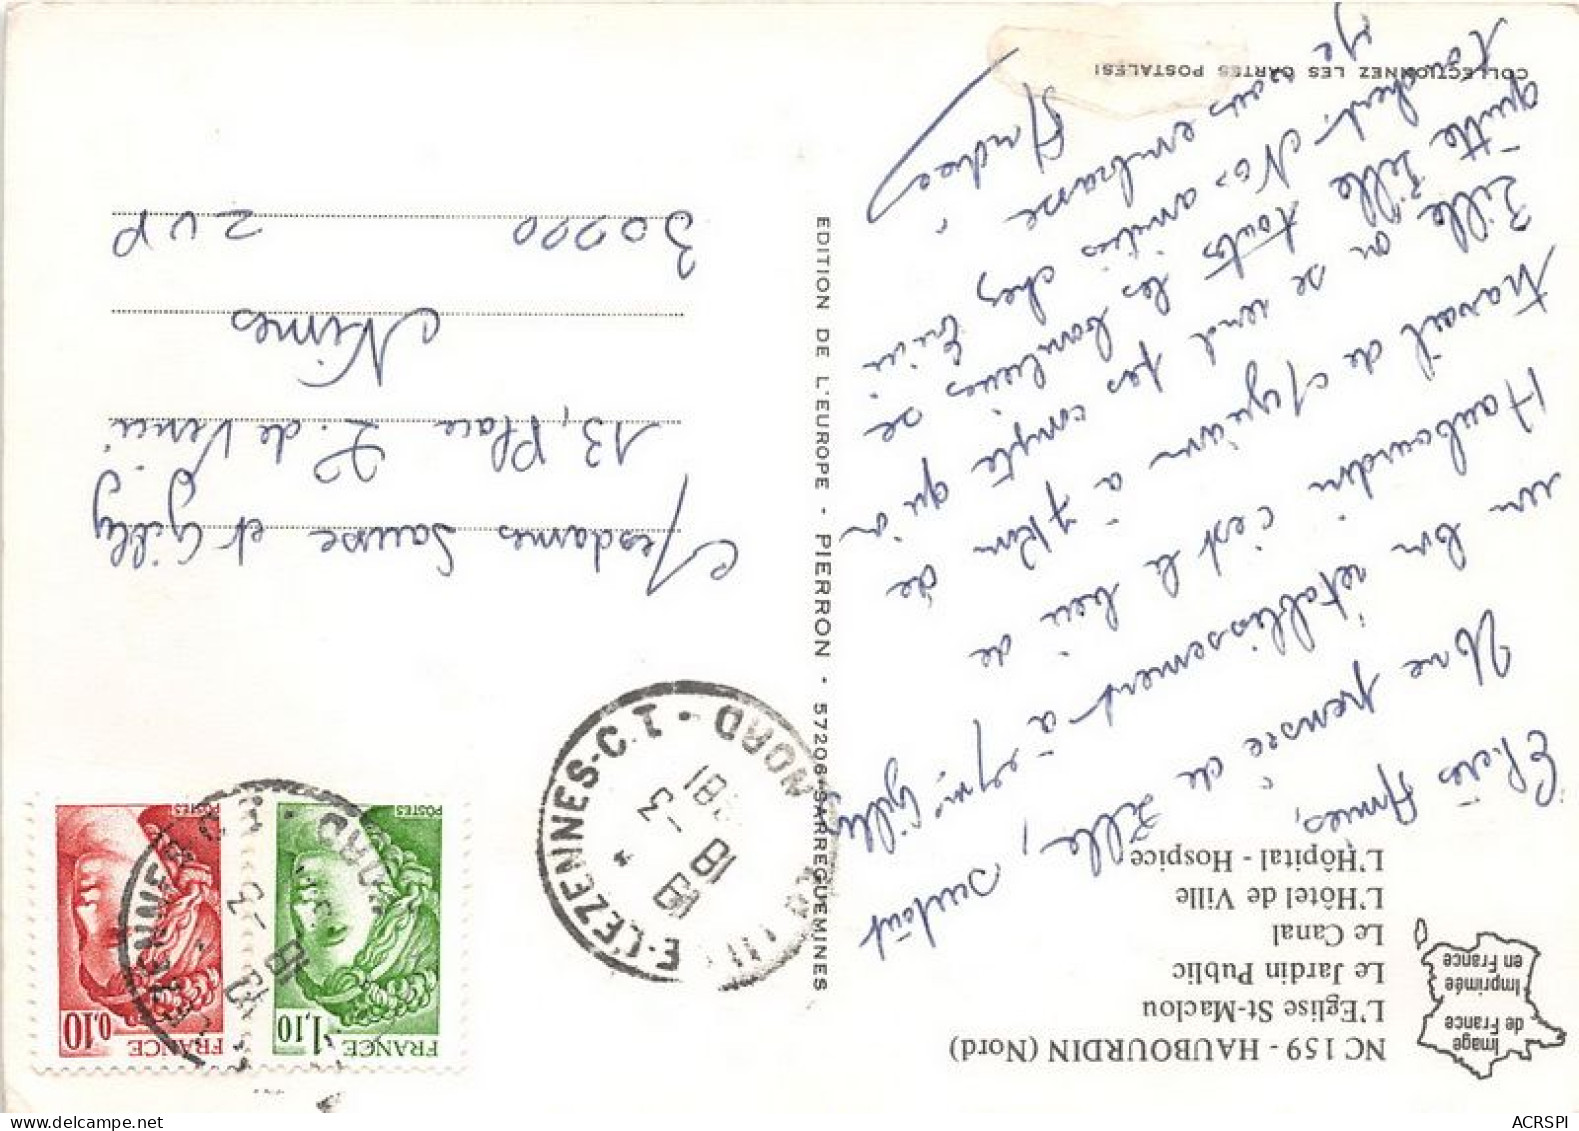 NC 159 - HAUBOURDIN (Nord)
L'Eglise St-Maclou
Le Jardin Public
Le Canal
L'Hôtel de Ville
L'Hôpital - Hospice
Image
de France
Imprimée
en France
Chères Amies,
Une pensée de Lille, surtout
un bon rétablissement à Mme Gilly
Haubourdin c'est le lieu de
travail de à 7 km de
Lille on se rend pas compte qu'on
quitte Lille toutes les banlieues se
touchent. Nos amitiés chez
je vous embrasse
Andrée
COLLECTIONNEZ LES CARTES POSTALES!
EDITION DE L'EUROPE - PIERRON - 57206 SARREGUEMINES
FRANCE
1,10
POSTES
FRANCE
0,10
POSTES
E-LEZENNES-C.T. NORD
18
18 -3
1981
Mesdames Sausse et Gilly
13, Place L. de Vinci
Nîmes
30000 ZUP
ACRSPI